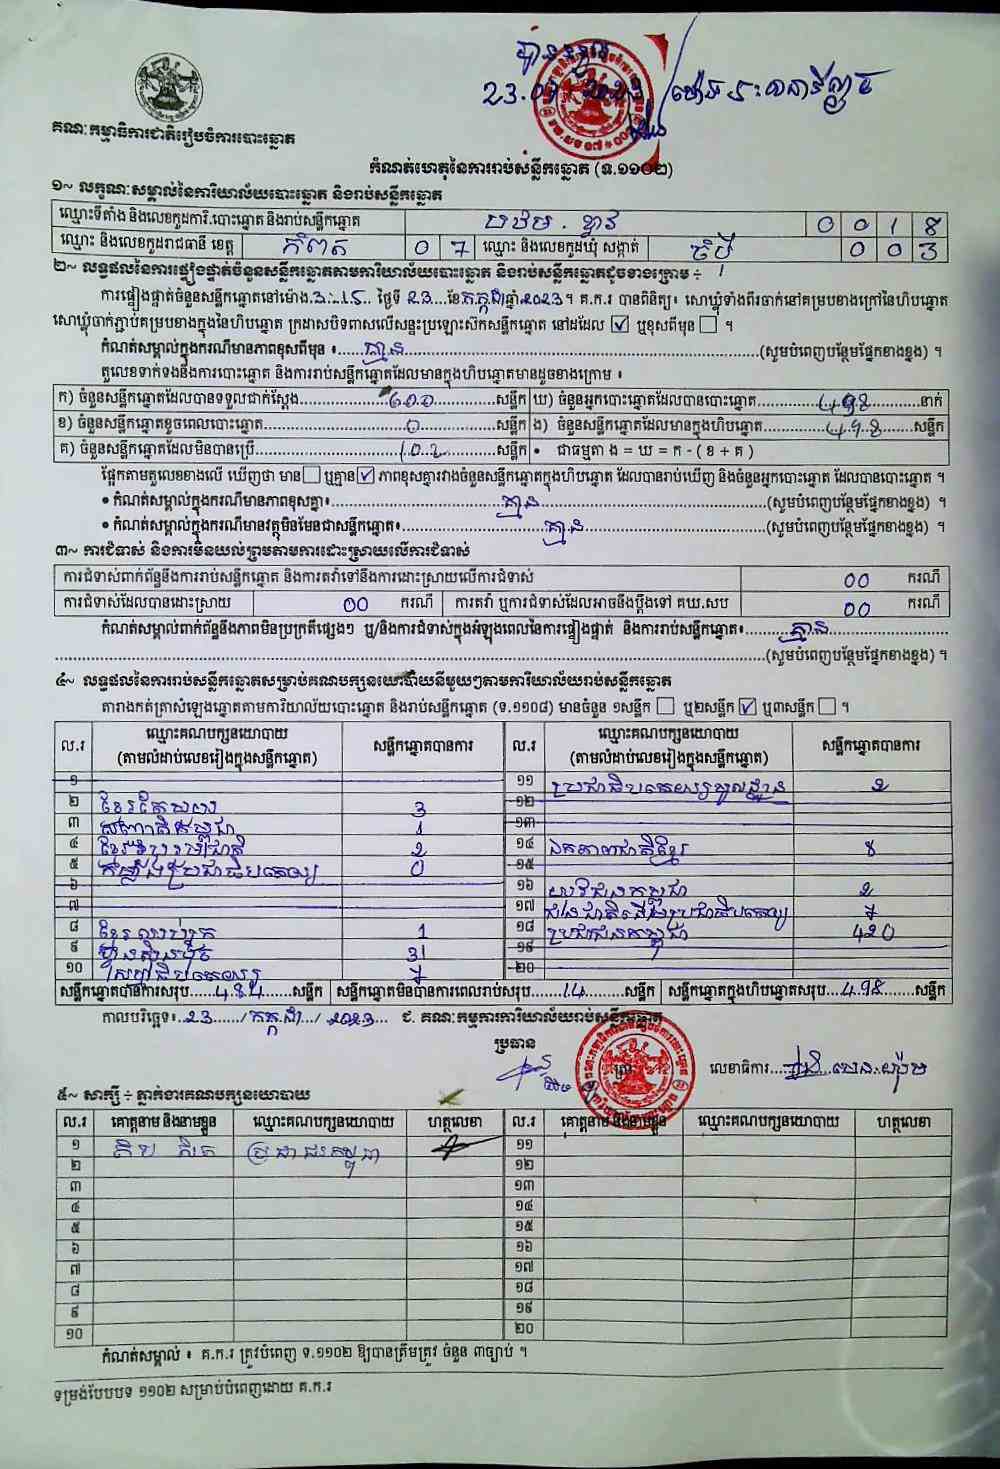 បានទទួល
23.07.2023
គណៈកម្មាធិការជាតិរៀបចំការបោះឆ្នោត
កំណត់ហេតុនៃការរាប់សន្លឹកឆ្នោត (ទ.១១០២)
១~ លក្ខណៈសម្គាល់នៃការិយាល័យបោះឆ្នោត និងរាប់សន្លឹកឆ្នោត
ឈ្មោះទីតាំង និងលេខកូដការិ.បោះឆ្នោត និងរាប់សន្លឹកឆ្នោត 0 0 1 8
ឈ្មោះ និងលេខកូដរាជធានី ខេត្ត កំពត 0 7 ឈ្មោះ និងលេខកូដឃុំ សង្កាត់ 0 0 3
២~ លទ្ធផលនៃការផ្ទៀងផ្ទាត់ចំនួនសន្លឹកឆ្នោតតាមការិយាល័យបោះឆ្នោត និងរាប់សន្លឹកឆ្នោតដូចខាងក្រោម ÷
ការផ្ទៀងផ្ទាត់ចំនួនសន្លឹកឆ្នោតនៅម៉ោង 3:15 ថ្ងៃទី 23 ខែ កក្កដា ឆ្នាំ 2023 ។ គ.ក.រ បានពិនិត្យ៖ សោឃ្លុំទាំងពីរចាក់នៅគម្របខាងក្រៅនៃហិបឆ្នោត
សោឃ្លុំចាក់ភ្ជាប់គម្របខាងក្នុងនៃហិបឆ្នោត ក្រដាសបិទពាសលើសន្ទះប្រឡោះស៊កសន្លឹកឆ្នោត នៅដដែល ☑ ឬខុសពីមុន ☐ ។
កំណត់សម្គាល់ក្នុងករណីមានភាពខុសពីមុន ៖ គ្មាន (សូមបំពេញបន្ថែមផ្នែកខាងខ្នង) ។
តួលេខទាក់ទងនឹងការបោះឆ្នោត និងការរាប់សន្លឹកឆ្នោតដែលមានក្នុងហិបឆ្នោតមានដូចខាងក្រោម ៖
ក) ចំនួនសន្លឹកឆ្នោតដែលបានទទួលជាក់ស្តែង 600 សន្លឹក ឃ) ចំនួនអ្នកបោះឆ្នោតដែលបានបោះឆ្នោត 498 នាក់
ខ) ចំនួនសន្លឹកឆ្នោតខូចពេលបោះឆ្នោត 0 សន្លឹក ង) ចំនួនសន្លឹកឆ្នោតដែលមានក្នុងហិបឆ្នោត 498 សន្លឹក
គ) ចំនួនសន្លឹកឆ្នោតដែលមិនបានប្រើ 102 សន្លឹក • ជាធម្មតា ង = ឃ = ក - ( ខ + គ )
ផ្អែកតាមតួលេខខាងលើ ឃើញថា មាន ☐ ឬគ្មាន ☑ ភាពខុសគ្នារវាងចំនួនសន្លឹកឆ្នោតក្នុងហិបឆ្នោត ដែលបានរាប់ឃើញ និងចំនួនអ្នកបោះឆ្នោត ដែលបានបោះឆ្នោត ។
• កំណត់សម្គាល់ក្នុងករណីមានភាពខុសគ្នា៖ គ្មាន (សូមបំពេញបន្ថែមផ្នែកខាងខ្នង) ។
• កំណត់សម្គាល់ក្នុងករណីមានវត្ថុមិនមែនជាសន្លឹកឆ្នោត៖ គ្មាន (សូមបំពេញបន្ថែមផ្នែកខាងខ្នង) ។
៣~ ការជំទាស់ និងការមិនយល់ព្រមតាមការដោះស្រាយលើការជំទាស់
ការជំទាស់ពាក់ព័ន្ធនឹងការរាប់សន្លឹកឆ្នោត និងការតវ៉ាទៅនឹងការដោះស្រាយលើការជំទាស់ 00 ករណី
ការជំទាស់ដែលបានដោះស្រាយ 00 ករណី ការតវ៉ា ឬការជំទាស់ដែលអាចនឹងប្តឹងទៅ គឃ.សប 00 ករណី
កំណត់សម្គាល់ពាក់ព័ន្ធនឹងភាពមិនប្រក្រតីផ្សេងៗ ឬ/និងការជំទាស់ក្នុងអំឡុងពេលនៃការផ្ទៀងផ្ទាត់ និងការរាប់សន្លឹកឆ្នោត៖ គ្មាន
(សូមបំពេញបន្ថែមផ្នែកខាងខ្នង) ។
៤~ លទ្ធផលនៃការរាប់សន្លឹកឆ្នោតសម្រាប់គណបក្សនយោបាយនីមួយៗតាមការិយាល័យរាប់សន្លឹកឆ្នោត
តារាងកត់ត្រាសំឡេងឆ្នោតតាមការិយាល័យបោះឆ្នោត និងរាប់សន្លឹកឆ្នោត (ទ.១១០៨) មានចំនួន ១សន្លឹក ☐ ឬ២សន្លឹក ☑ ឬ៣សន្លឹក ☐ ។
ល.រ ឈ្មោះគណបក្សនយោបាយ (តាមលំដាប់លេខរៀងក្នុងសន្លឹកឆ្នោត) សន្លឹកឆ្នោតបានការ ល.រ ឈ្មោះគណបក្សនយោបាយ (តាមលំដាប់លេខរៀងក្នុងសន្លឹកឆ្នោត) សន្លឹកឆ្នោតបានការ
១ ១១ ប្រជាធិបតេយ្យមូលដ្ឋាន 2
២ ខ្មែរតែមួយ 3 ១២
៣ សញ្ជាតិកម្ពុជា 1 ១៣
៤ ខ្មែររួបរួមជាតិ 2 ១៤ ឯកភាពជាតិខ្មែរ 8
៥ កម្លាំងប្រជាធិបតេយ្យ 0 ១៥
៦ ១៦ យុវជនកម្ពុជា 2
៧ ១៧
៨ ខ្មែរឈប់ក្រ 1 ១៨ ប្រជាជនកម្ពុជា 420
៩ ហ្វ៊ុនស៊ិនប៉ិច 31 ១៩
១០ ២០
សន្លឹកឆ្នោតបានការសរុប 484 សន្លឹក សន្លឹកឆ្នោតមិនបានការពេលរាប់សរុប 14 សន្លឹក សន្លឹកឆ្នោតក្នុងហិបឆ្នោតសរុប 498 សន្លឹក
កាលបរិច្ឆេទ៖ 23 / កក្កដា / 2023 ជ. គណៈកម្មការការិយាល័យរាប់សន្លឹកឆ្នោត
ប្រធាន
លេខាធិការ
៥~ សាក្សី ÷ ភ្នាក់ងារគណបក្សនយោបាយ
ល.រ គោត្តនាម និងនាមខ្លួន ឈ្មោះគណបក្សនយោបាយ ហត្ថលេខា ល.រ គោត្តនាម និងនាមខ្លួន ឈ្មោះគណបក្សនយោបាយ ហត្ថលេខា
១ ប្រជាជនកម្ពុជា ១១
២ ១២
៣ ១៣
៤ ១៤
៥ ១៥
៦ ១៦
៧ ១៧
៨ ១៨
៩ ១៩
១០ ២០
កំណត់សម្គាល់ ៖ គ.ក.រ ត្រូវបំពេញ ទ.១១០២ ឱ្យបានត្រឹមត្រូវ ចំនួន ៣ច្បាប់ ។
ទម្រង់បែបបទ ១១០២ សម្រាប់បំពេញដោយ គ.ក.រ